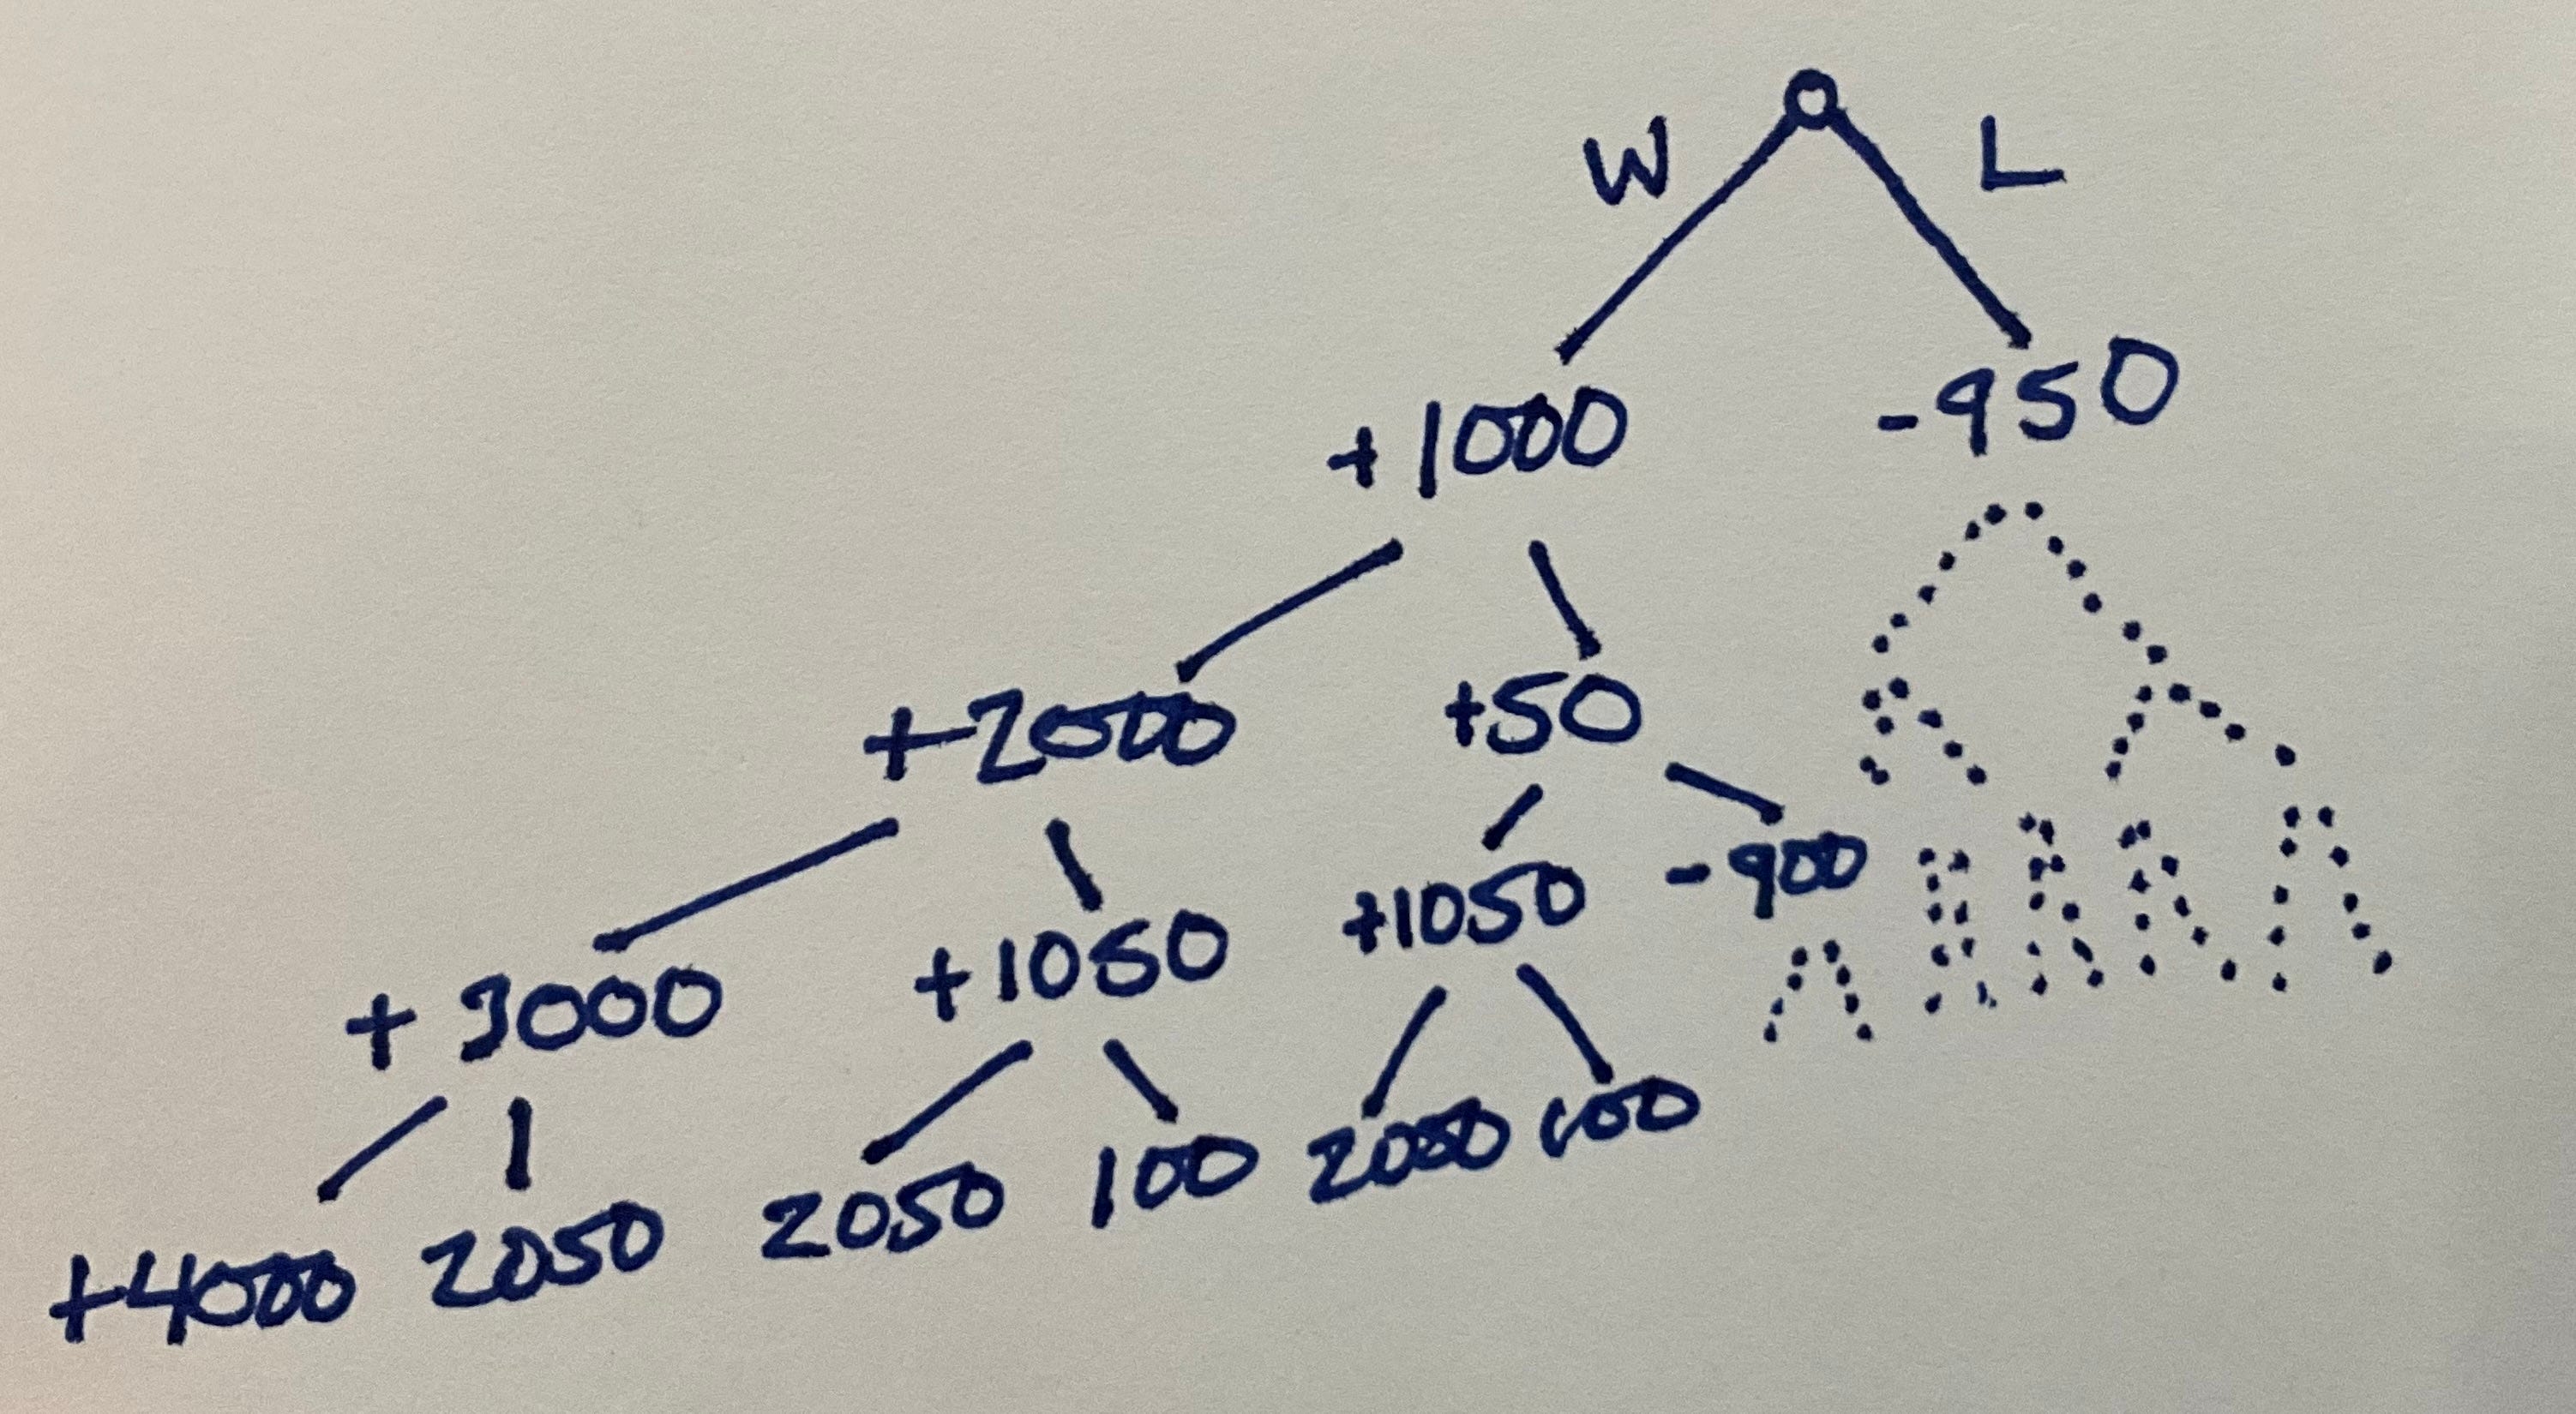 W L
+1000 -950
+2000 +50
+3000 +1050 +1050 -900
+4000 2050 2050 100 2050 100